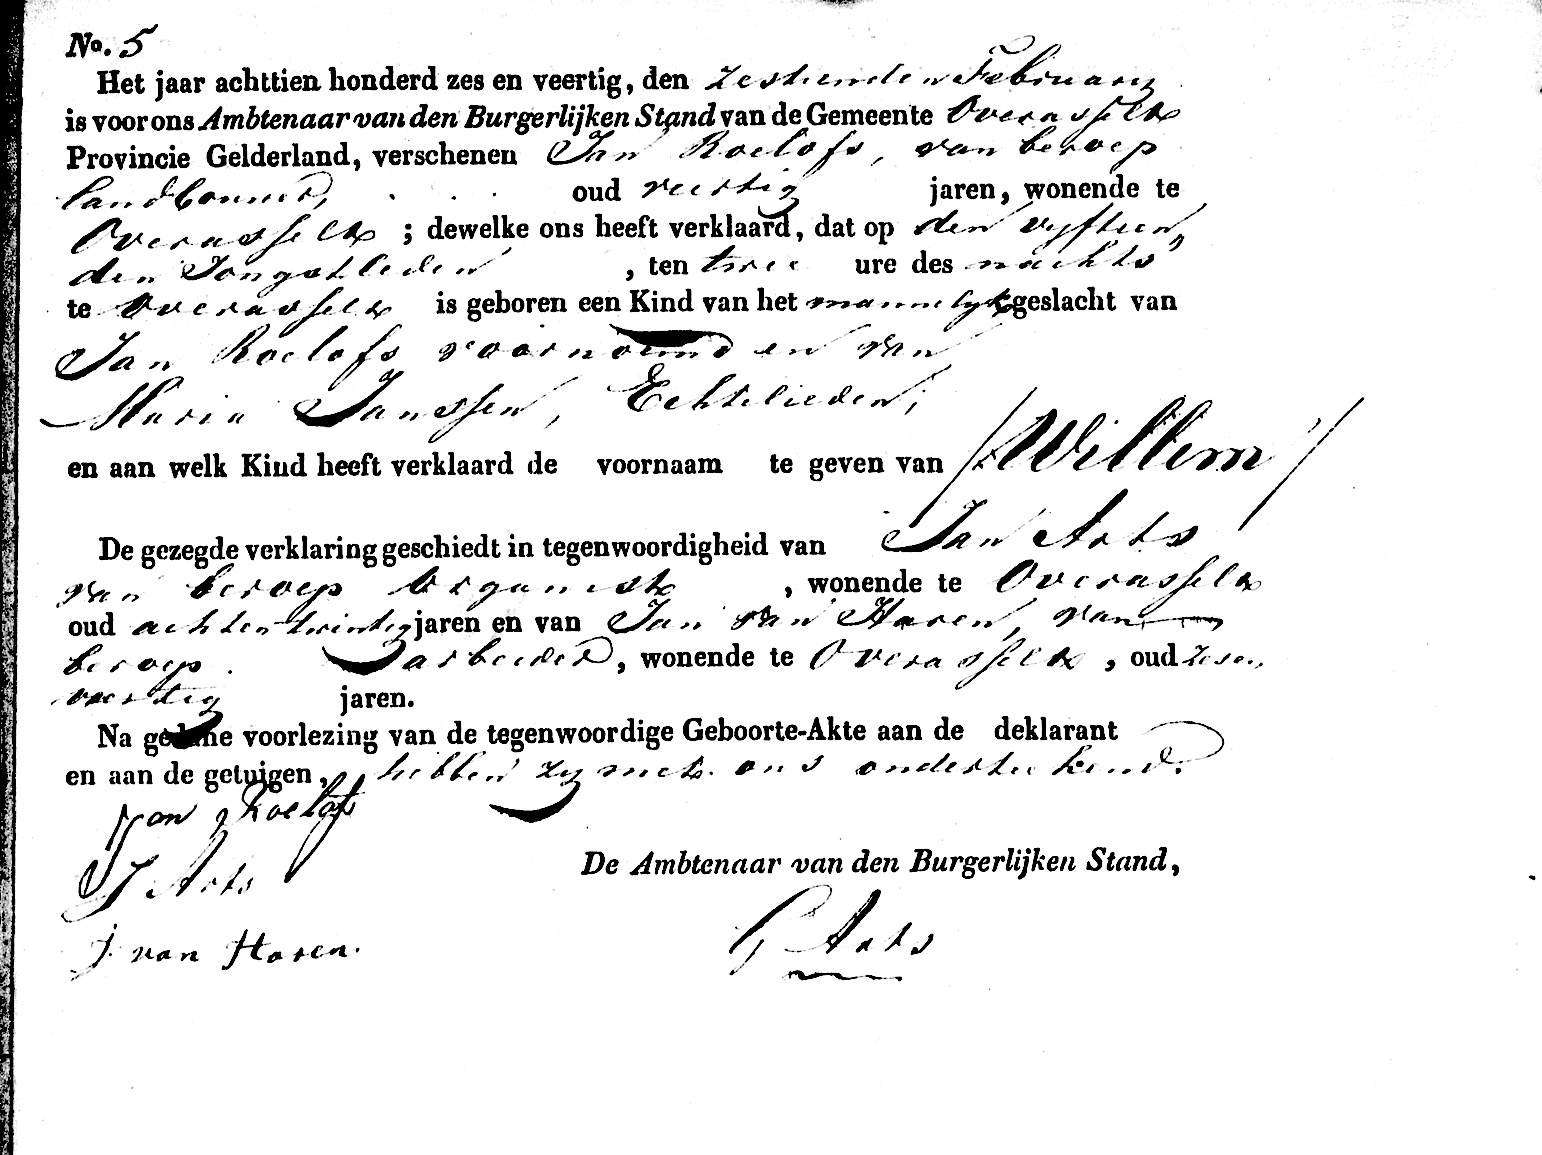 No. 5
Het jaar achttien honderd zes en veertig, den zestienden February
is voor ons Ambtenaar van den Burgerlijken Stand van de Gemeente Overasselt
Provincie Gelderland, verschenen Jan Roelofs, van beroep
landbouwer, oud veertig jaren, wonende te
Overasselt ; dewelke ons heeft verklaard, dat op den vyftien„
den Jongstleden , ten twee ure des nachts
te Overasselt is geboren een Kind van het mannelyk geslacht van
Jan Roelofs voornoemd en van
Maria Janssen, Echtelieden;
en aan welk Kind heeft verklaard de voornaam te geven van /Willem/
De gezegde verklaring geschiedt in tegenwoordigheid van Jan Arts
van beroep organist , wonende te Overasselt
oud achtentwintig jaren en van Jan van Haren, van
beroep arbeider, wonende te Overasselt , oud zesen„
veertig jaren.
Na gedane voorlezing van de tegenwoordige Geboorte-Akte aan de deklarant
en aan de getuigen, hebben zy met ons onderteekend.
Jan Roelofs
J Arts
De Ambtenaar van den Burgerlijken Stand,
J. van Haren.
G Arts